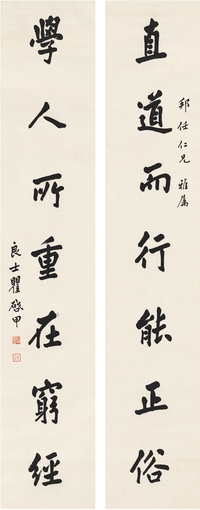 直道而行能正俗
邦任仁兄 雅属
學人所重在窮經
良士瞿啓甲